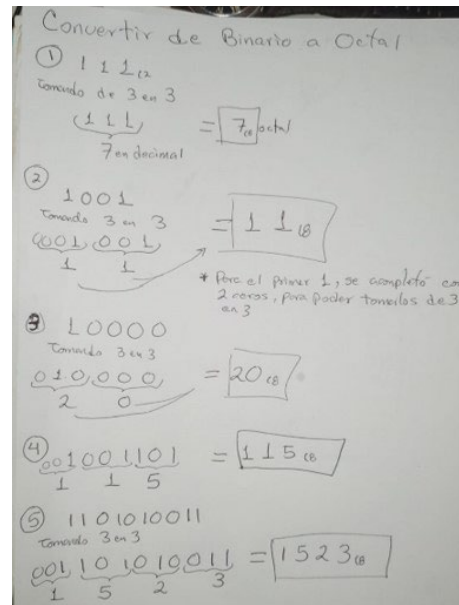 Convertir de Binario a Octal
① 1 1 1₍₂
Tomando de 3 en 3
(1 1 1) = 7₍₈ octal
7 en decimal
②
1 0 0 1
Tomando 3 en 3
0001, 001, = 1 1 ₍₈
1 1
* Para el primer 1, se completó con
2 ceros, para poder tomarlos de 3
en 3
③ 1 0 0 0 0
Tomando 3 en 3
0 1 0, 0 0 0, = 20 ₍₈
2 0
④ 00 1 0 0 1 1 0 1 = 1 1 5 ₍₈
1 1 5
⑤ 1101010011
Tomando 3 en 3
001, 10 1 010 011 = 1 5 2 3₍₈
1 5 2 3